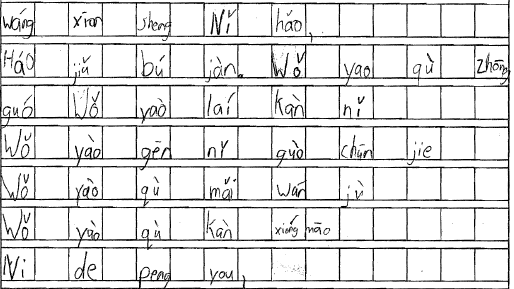 Wáng xiān sheng Nǐ hǎo,
Háo jiǔ bú jàn. Wǒ yao qù Zhōng
guó Wǒ yaò laí kàn nǐ
Wǒ yào gēn nǐ guò chūn jie
Wǒ yào qù mǎi wán jù
Wǒ yào qù kàn xióng māo
Ni de peng you,